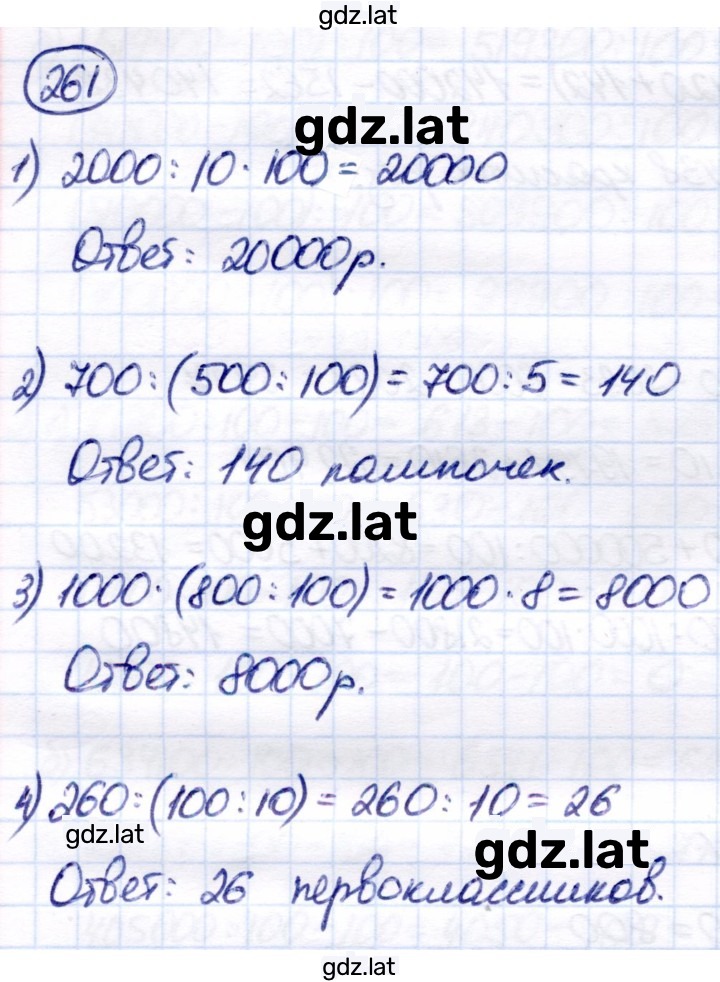 gdz.lat
261
gdz.lat
1) 2000 : 10 · 100 = 20000
Ответ: 20000р.
2) 700 : (500 : 100) = 700 : 5 = 140
Ответ: 140 лампочек.
gdz.lat
3) 1000 · (800 : 100) = 1000 · 8 = 8000
Ответ: 8000р.
4) 260 : (100 : 10) = 260 : 10 = 26
gdz.lat
gdz.lat
Ответ: 26 первоклассников.
gdz.lat